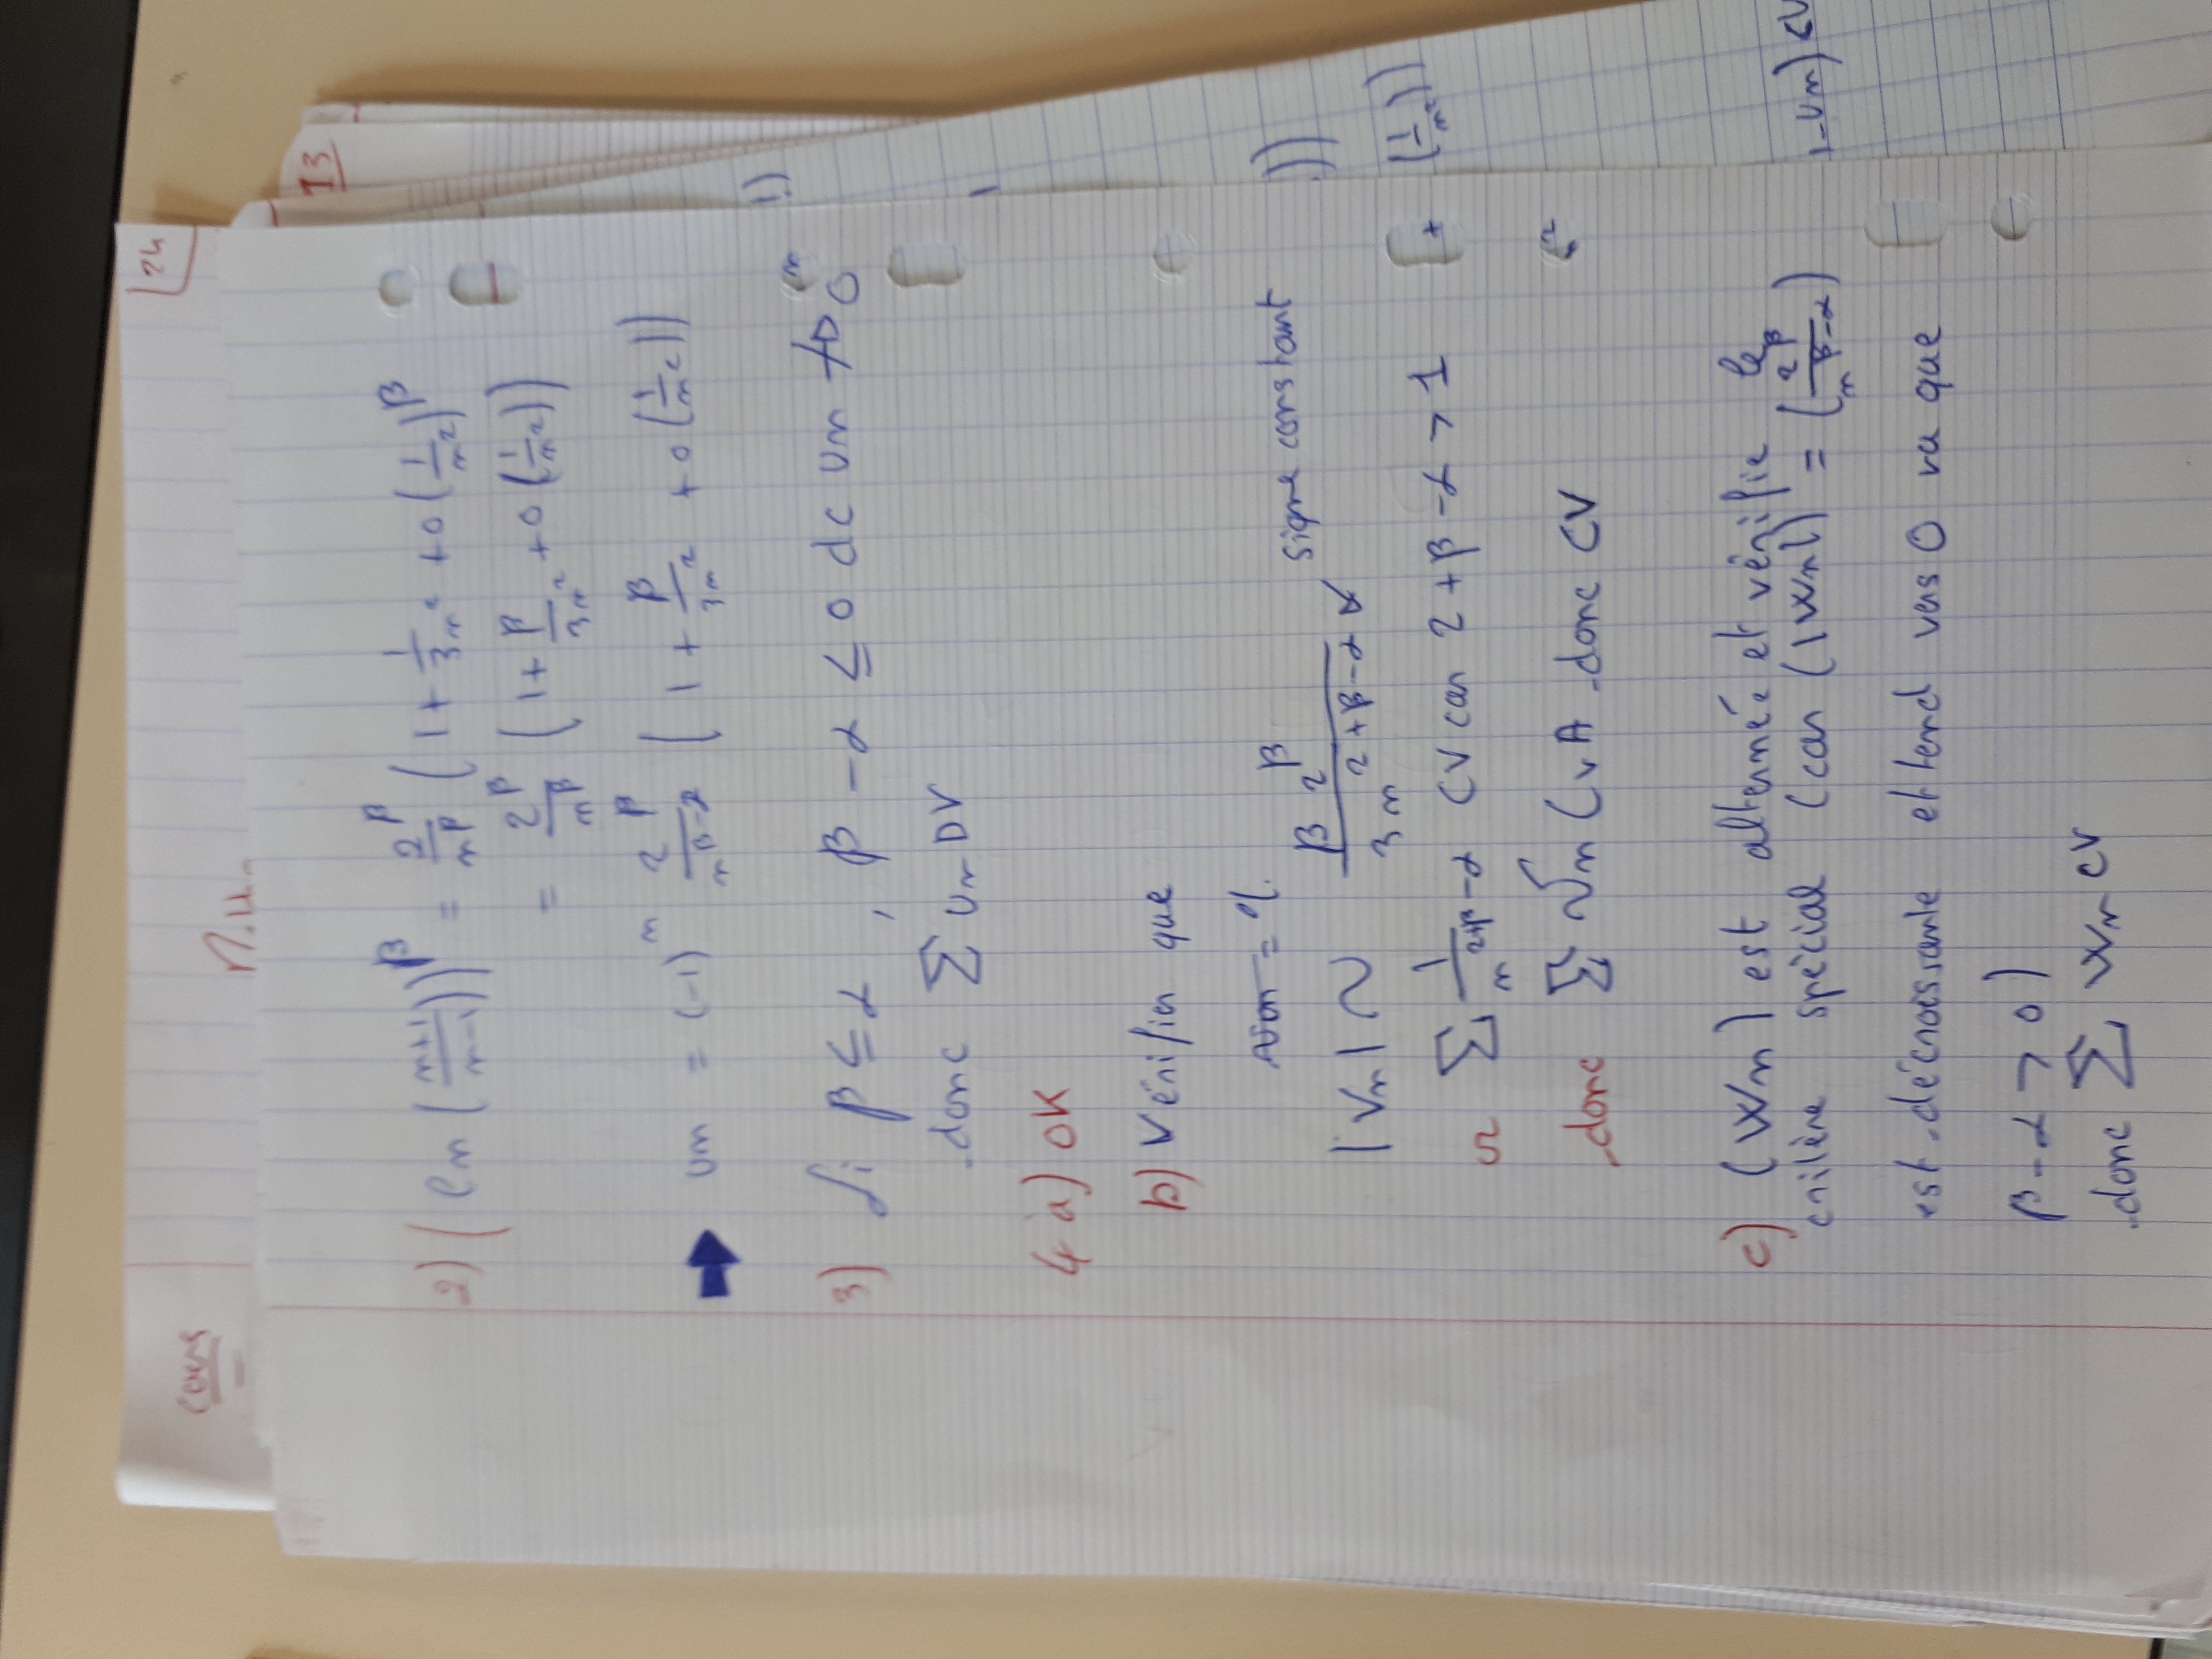 cours
24
13
2) ( ln ( (n+1)/(n-1) ))^β = 2^β/n^β ( 1 + 1/3n² + o(1/n²)^β
= 2^β/n^β ( 1 + β/3n² + o(1/n²))
➡ un = (-1)^n 2^β/n^(β-α) ( 1 + β/3n² + o(1/n²))
3) Si β ≤ α , β - α ≤ 0 dc un ↛ 0
donc Σ un DV
4 a) OK
b) Vérifier que
|Vn| ~ β 2^β / 3n^(2+β-α) signe constant
or Σ 1/n^(2+β-α) CV car 2+β-α > 1
donc Σ Vn CVA donc CV
c) (Wn) est alternée et vérifie le
critère spécial (car (|Wn|) = (2^β/n^(β-α))
est décroissante et tend vers 0 vu que
β-α > 0)
donc Σ Wn CV
!)
))
(1/n²))
-Un) CV